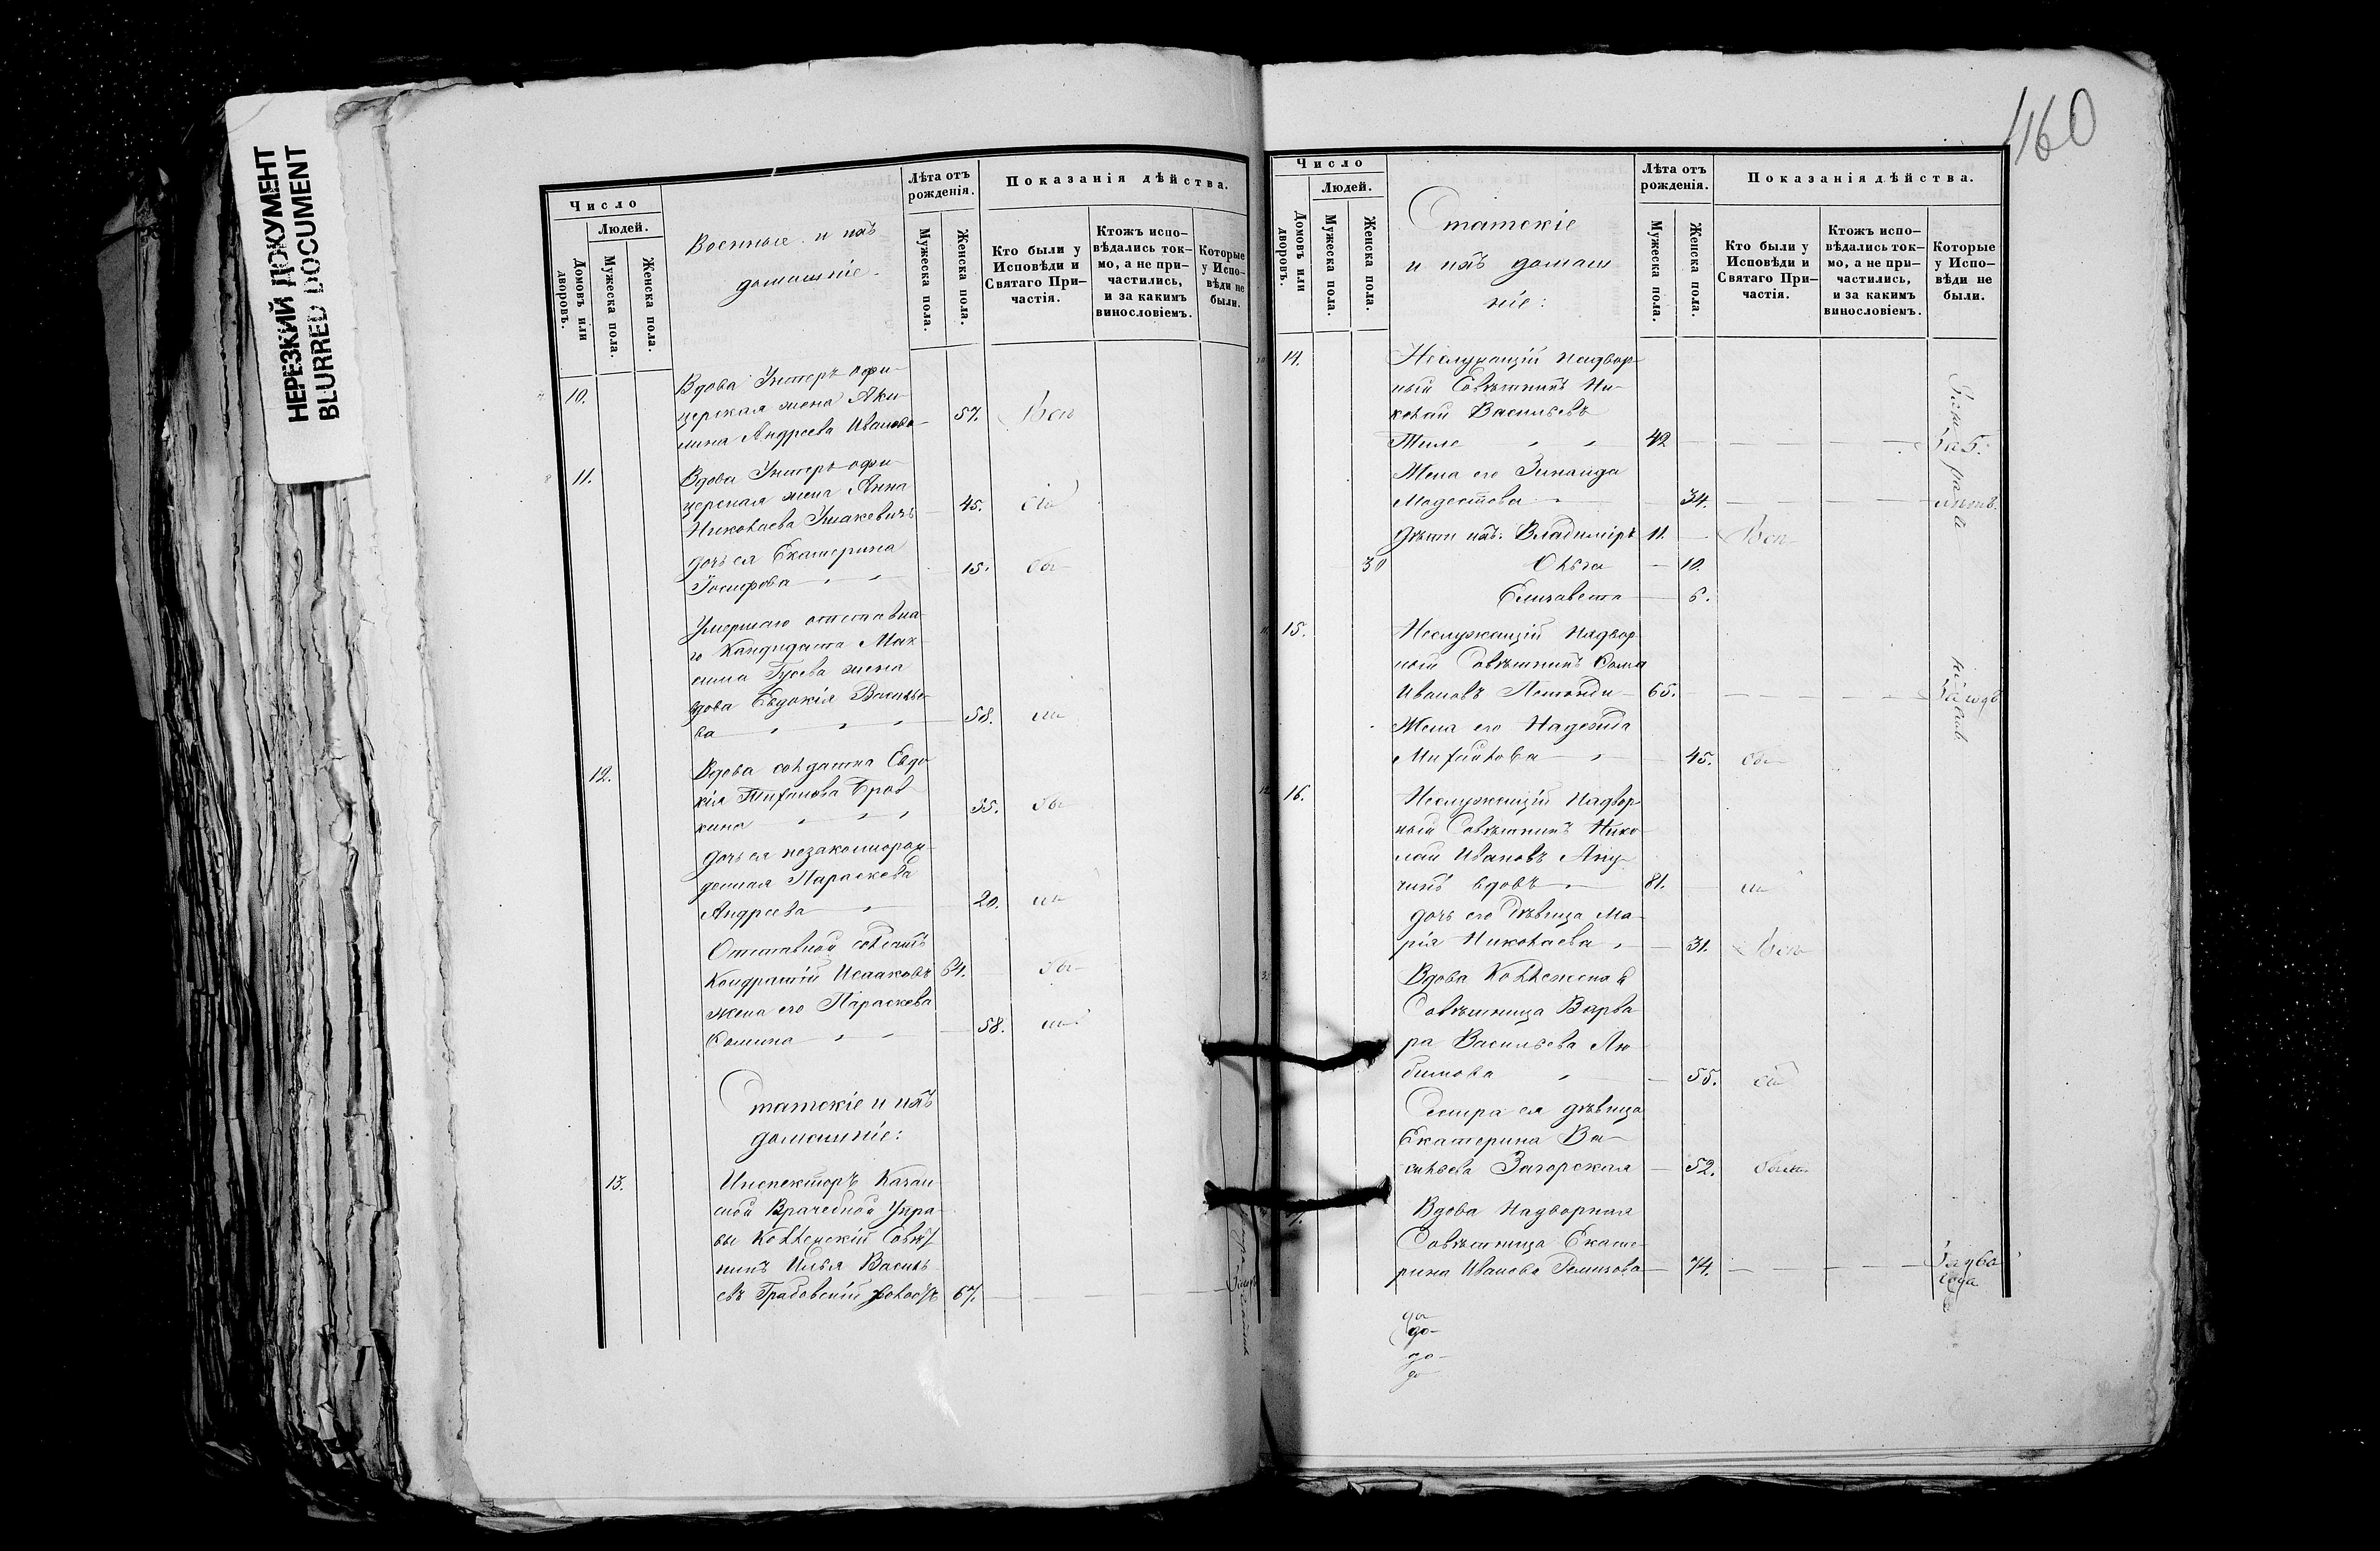 НЕРЕЗКИЙ ДОКУМЕНТ
BLURRED DOCUMENT
Число
Людей.
Домовъ или дворовъ.
Мужеска пола.
Женска пола.
Военные и ихъ
домашніе.
Лѣта отъ
рожденія.
Мужеска пола.
Женска пола.
Показанія дѣйства.
Кто были у
Исповѣди и
Святаго При-
частія.
Ктожъ испо-
вѣдались ток-
мо, а не при-
частились,
и за какимъ
винословіемъ.
Которые
у Испо-
вѣди не
были.
10.
Вдова Унтеръ офи-
церская жена Аку-
лина Андреева Иванова 57.
11.
Вдова Унтеръ-офи-
церская жена Анна
Николаева 45.
дочь ея Екатерина
Іосифова 15.
Умершаго отставна-
го Кандидата Мак-
сима Гусева жена
вдова Евдокія Василье-
ва 58.
12.
Вдова солдатка Евдо
кія
кина 55.
дочь ея незаконнорож-
денная Параскева
Андреева 20.
Отставной солдатъ
Кондратій Исааковъ 64.
жена его Параскева
Фомина 58.
Статскіе и ихъ
домашніе:
13.
Инспекторъ Казан
ской Врачебной Упра
вы Коллежскій Совѣт
никъ Илья Василь
евъ Градовскій холостъ 67.
160
Число
Людей.
Домовъ или дворовъ.
Мужеска пола.
Женска пола.
Статскіе
и ихъ домаш
ніе:
Лѣта отъ
рожденія.
Мужеска пола.
Женска пола.
Показанія дѣйства.
Кто были у
Исповѣди и
Святаго При-
частія.
Ктожъ испо-
вѣдались ток-
мо, а не при-
частились,
и за какимъ
винословіемъ.
Которые
у Испо-
вѣди не
были.
14.
Неслужащій Надвор-
ный Совѣтникъ Ни-
колай Васильевъ
Тиле 42 За 5.
Жена его Зинаида
Модестова 34. лѣтъ.
Дѣти ихъ: Владиміръ 11.
30 Ольга 10.
Елизавета 6.
15.
Неслужащій Надвор
ный Совѣтникъ Фома
Ивановъ 65. За годъ
Жена его Надежда
Михайлова 45.
16.
Неслужащій Надвор
ный Совѣтникъ Нико
лай Ивановъ
вдовъ 81.
дочь его дѣвица Ма-
рія Николаева 31.
Вдова Коллежская
Совѣтница Варва
ра Васильева Лю
бимова 55.
Сестра ея дѣвица
Екатерина Ва-
сильева Загорская 52.
Вдова Надворная
Совѣтница Екате-
рина Иванова Ремизова 74. За два
года